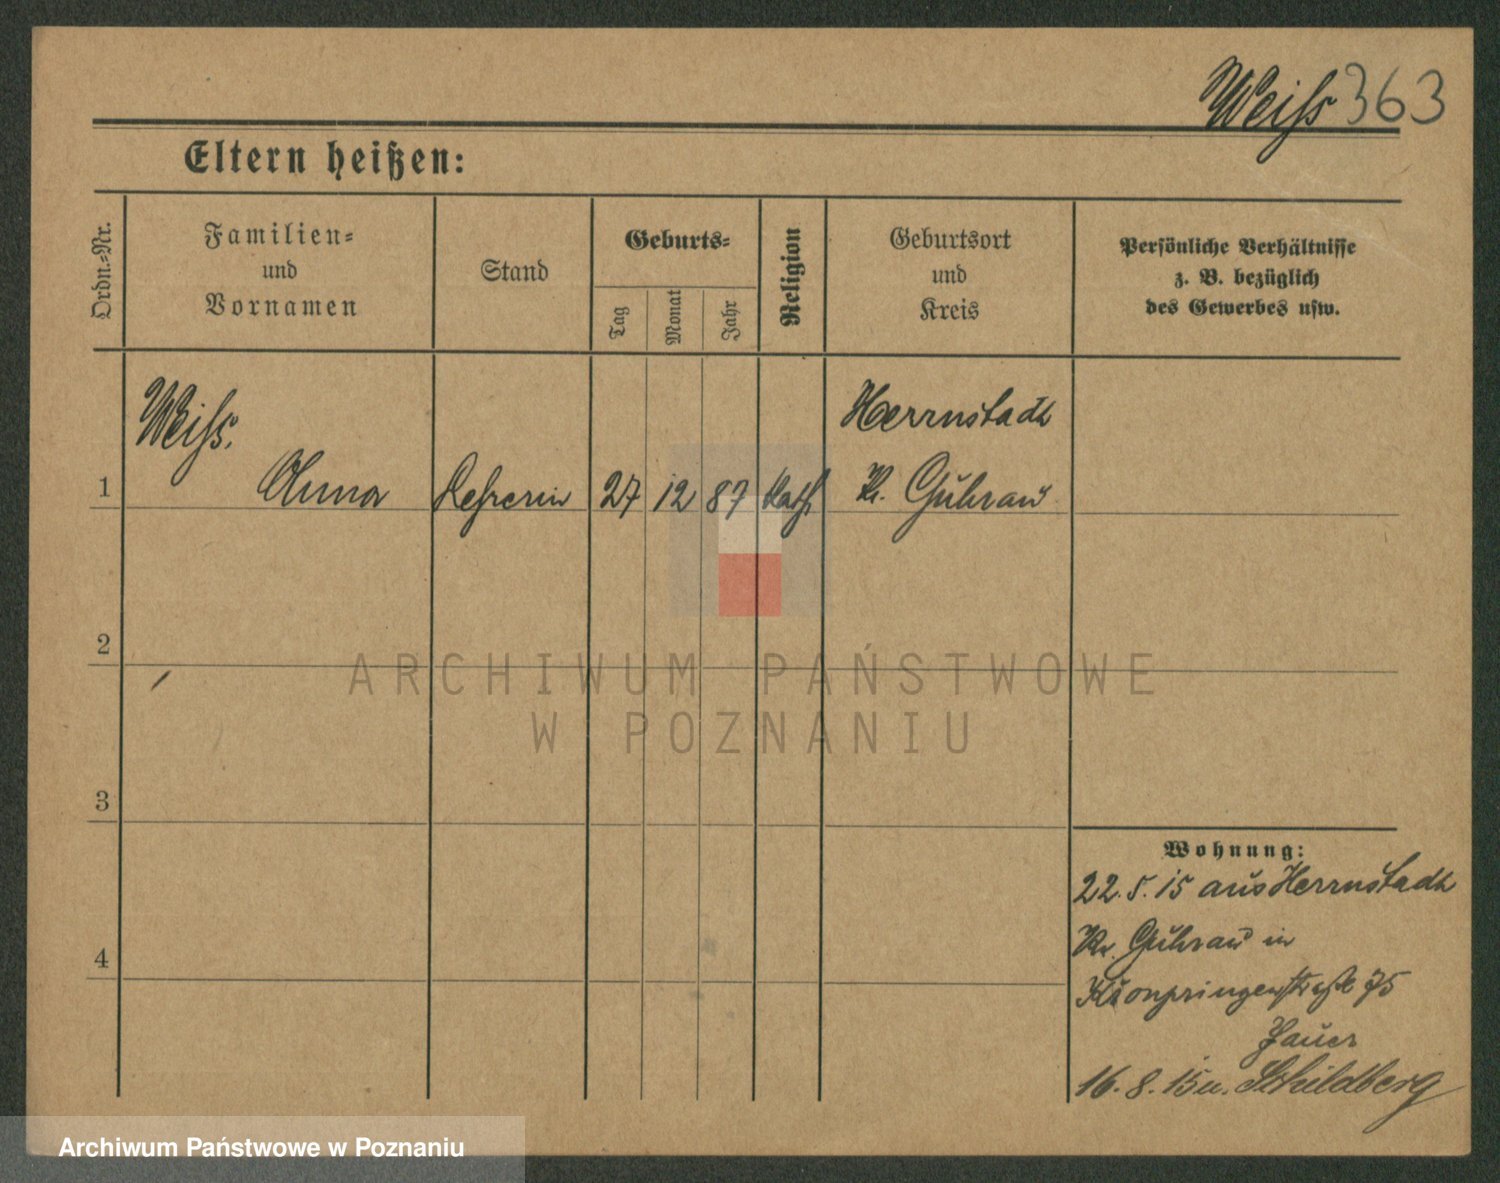 Weiss 363
Eltern heißen:
Ordn.-Nr.
Familien-
und
Vornamen
Stand
Geburts-
Tag
Monat
Jahr
Religion
Geburtsort
und
Kreis
Persönliche Verhältnisse
z. B. bezüglich
des Gewerbes usw.
Weiss,
1 Anna Lehrerin 27 12 87 kath
Herrnstadt
Kr. Guhrau
2
3
4
Wohnung:
22.5.15 aus Herrnstadt
Kr. Guhrau in
Kronprinzenstraße 75
Jauer
16.8.15 n. Schildberg
ARCHIWUM PAŃSTWOWE
W POZNANIU
Archiwum Państwowe w Poznaniu